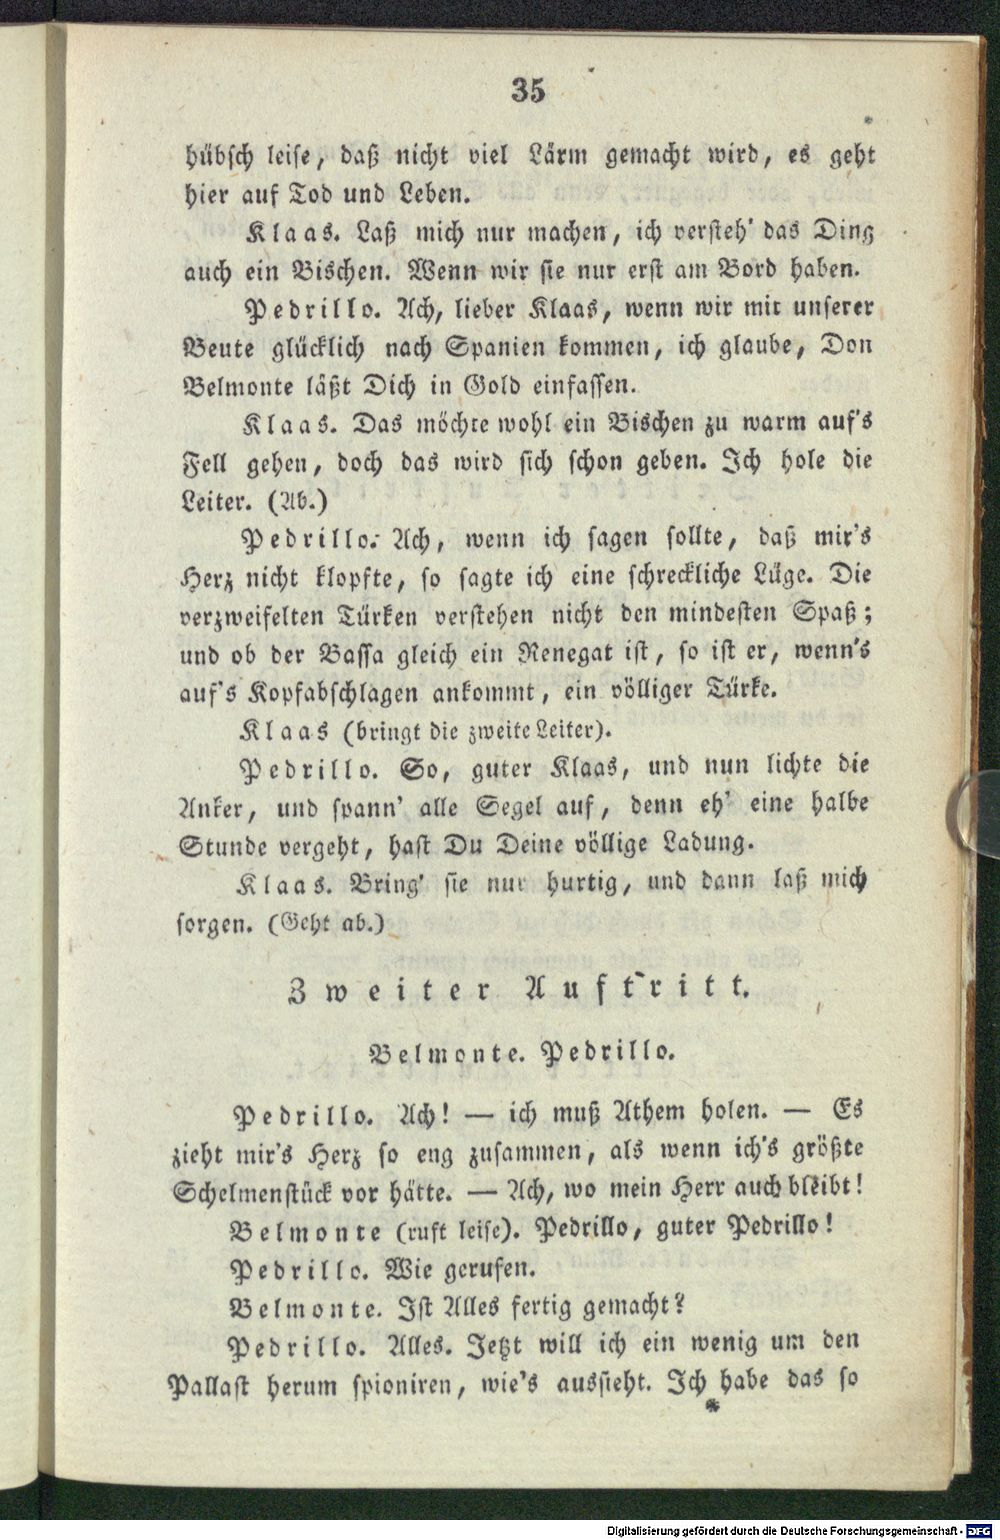 35
hübsch leise, daß nicht viel Lärm gemacht wird, es geht
hier auf Tod und Leben.
Klaas. Laß mich nur machen, ich versteh' das Ding
auch ein Bischen. Wenn wir sie nur erst am Bord haben.
Pedrillo. Ach, lieber Klaas, wenn wir mit unserer
Beute glücklich nach Spanien kommen, ich glaube, Don
Belmonte läßt Dich in Gold einfassen.
Klaas. Das möchte wohl ein Bischen zu warm auf's
Fell gehen, doch das wird sich schon geben. Ich hole die
Leiter. (Ab.)
Pedrillo. Ach, wenn ich sagen sollte, daß mir's
Herz nicht klopfte, so sagte ich eine schreckliche Lüge. Die
verzweifelten Türken verstehen nicht den mindesten Spaß;
und ob der Bassa gleich ein Renegat ist, so ist er, wenn's
auf's Kopfabschlagen ankommt, ein völliger Türke.
Klaas (bringt die zweite Leiter).
Pedrillo. So, guter Klaas, und nun lichte die
Anker, und spann' alle Segel auf, denn eh' eine halbe
Stunde vergeht, hast Du Deine völlige Ladung.
Klaas. Bring' sie nur hurtig, und dann laß mich
sorgen. (Geht ab.)
Zweiter Auftritt.
Belmonte. Pedrillo.
Pedrillo. Ach! — ich muß Athem holen. — Es
zieht mir's Herz so eng zusammen, als wenn ich's größte
Schelmenstück vor hätte. — Ach, wo mein Herr auch bleibt!
Belmonte (ruft leise). Pedrillo, guter Pedrillo!
Pedrillo. Wie gerufen.
Belmonte. Ist Alles fertig gemacht?
Pedrillo. Alles. Jetzt will ich ein wenig um den
Pallast herum spioniren, wie's aussieht. Ich habe das so
*
Digitalisierung gefördert durch die Deutsche Forschungsgemeinschaft - DFG